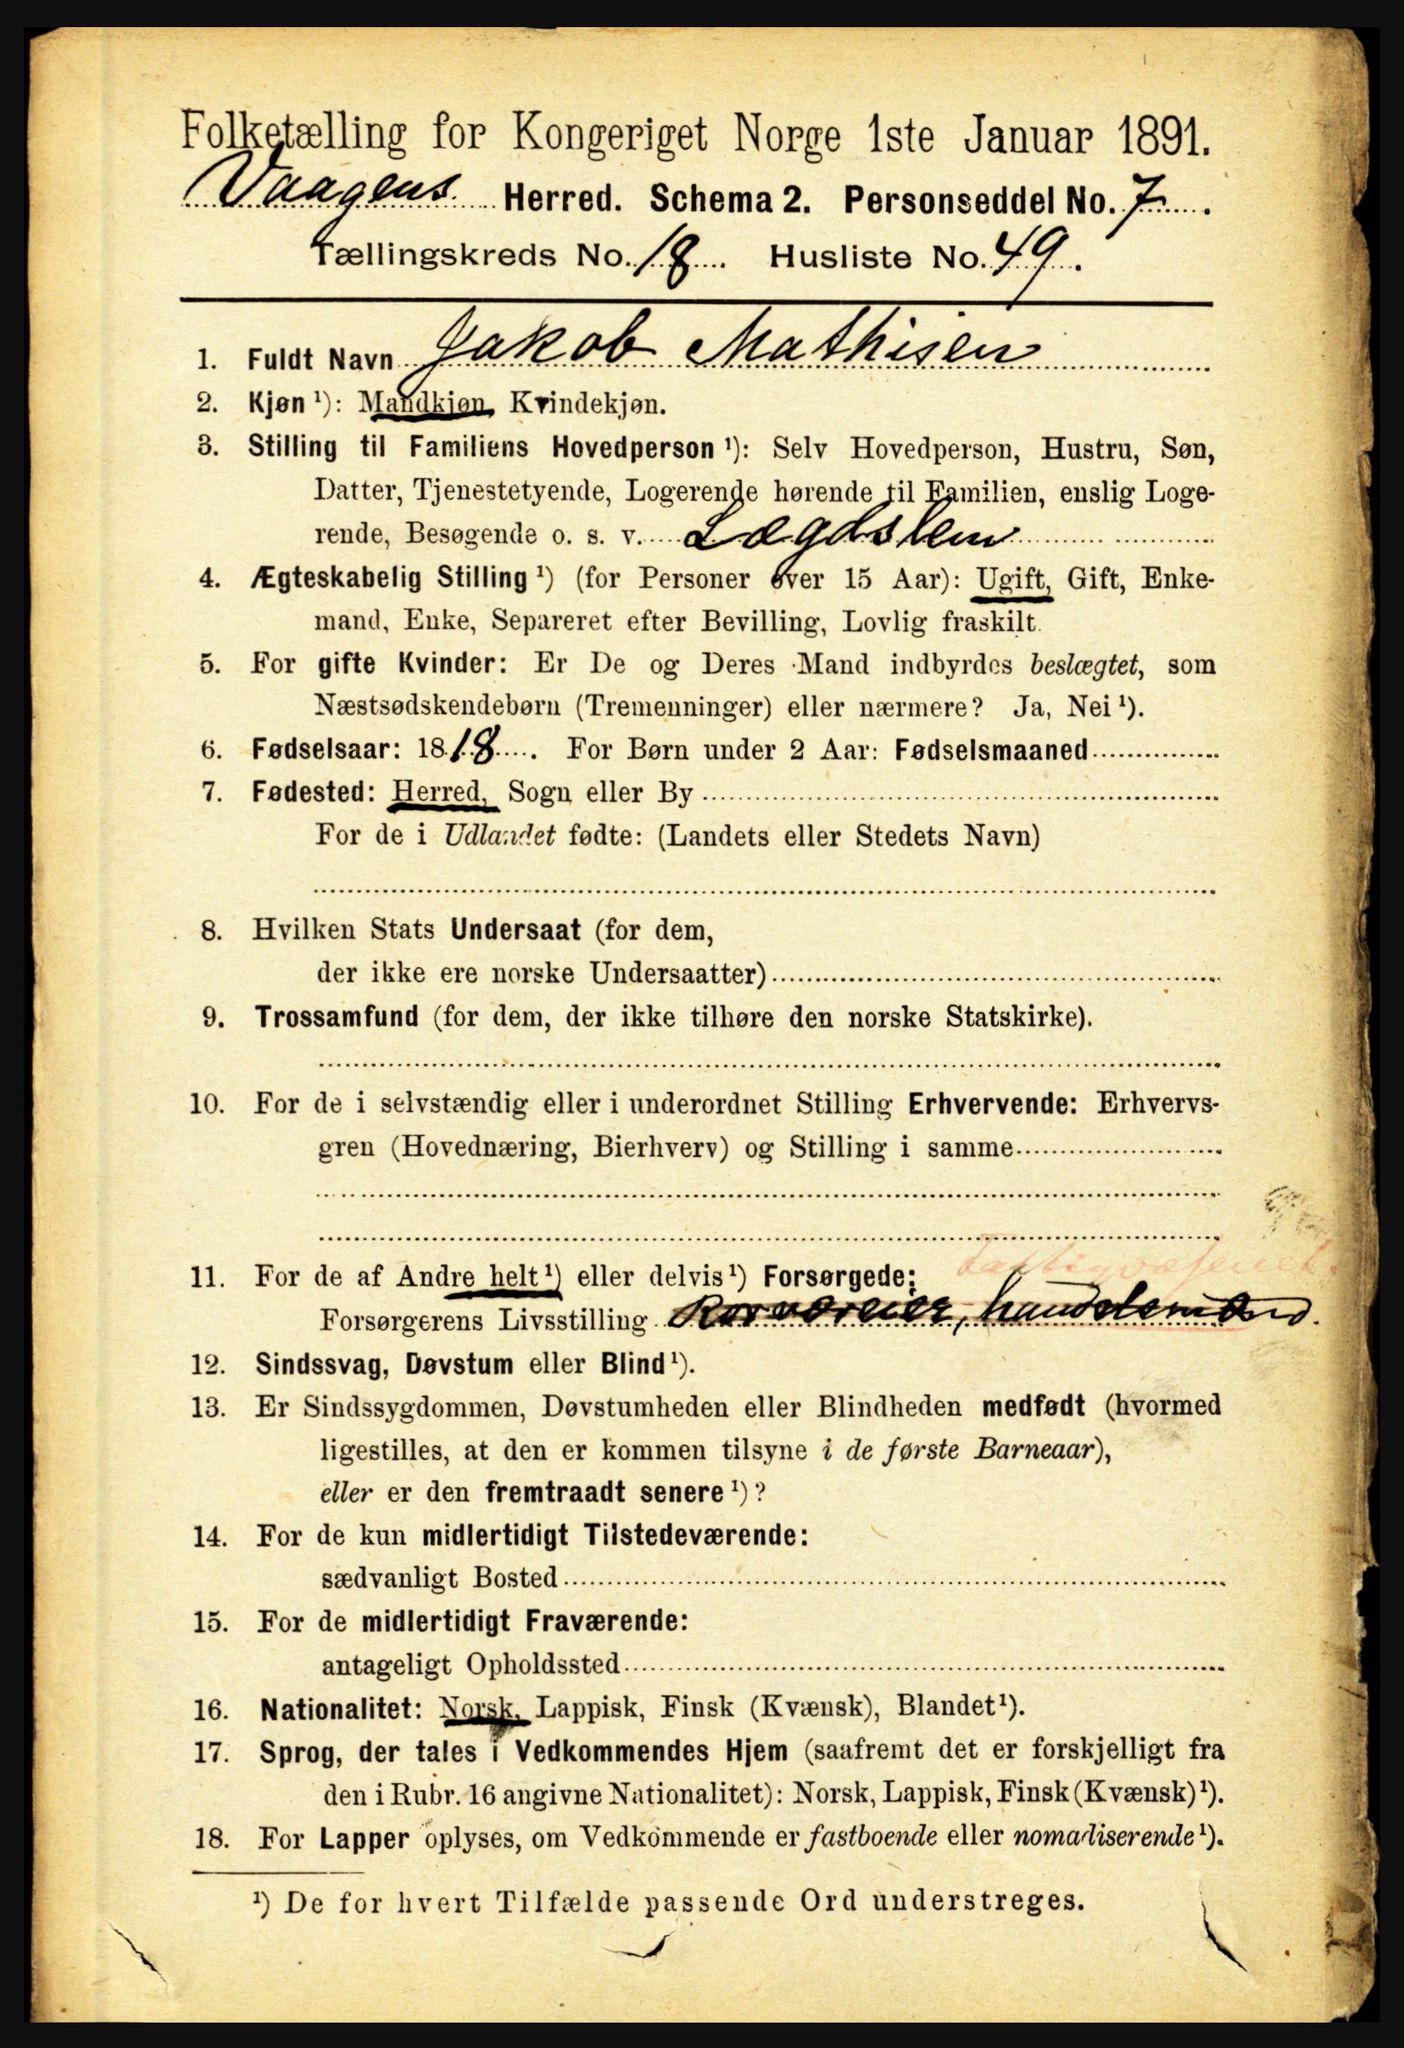 Folketælling for Kongeriget Norge 1ste Januar 1891.
Vaagens Herred. Schema 2. Personseddel No. 7.
Tællingskreds No. 18. Husliste No. 49.
1. Fuldt Navn Jakob Mathisen
2. Kjøn ¹): Mandkjøn, Kvindekjøn.
3. Stilling til Familiens Hovedperson ¹): Selv Hovedperson, Hustru, Søn,
Datter, Tjenestetyende, Logerende hørende til Familien, enslig Loge-
rende, Besøgende o. s. v. Lægdslem
4. Ægteskabelig Stilling ¹) (for Personer over 15 Aar): Ugift, Gift, Enke-
mand, Enke, Separeret efter Bevilling, Lovlig fraskilt.
5. For gifte Kvinder: Er De og Deres Mand indbyrdes beslægtet, som
Næstsødskendebørn (Tremenninger) eller nærmere? Ja, Nei ¹).
6. Fødselsaar: 1818. For Børn under 2 Aar: Fødselsmaaned
7. Fødested: Herred, Sogn eller By
For de i Udlandet fødte: (Landets eller Stedets Navn)
8. Hvilken Stats Undersaat (for dem,
der ikke ere norske Undersaatter)
9. Trossamfund (for dem, der ikke tilhøre den norske Statskirke).
10. For de i selvstændig eller i underordnet Stilling Erhvervende: Erhvervs-
gren (Hovednæring, Bierhverv) og Stilling i samme
Fattigvæsenet.
11. For de af Andre helt ¹) eller delvis ¹) Forsørgede:
Forsørgerens Livsstilling handelsmand.
12. Sindssvag, Døvstum eller Blind ¹).
13. Er Sindssygdommen, Døvstumheden eller Blindheden medfødt (hvormed
ligestilles, at den er kommen tilsyne i de første Barneaar),
eller er den fremtraadt senere ¹)?
14. For de kun midlertidigt Tilstedeværende:
sædvanligt Bosted
15. For de midlertidigt Fraværende:
antageligt Opholdssted
16. Nationalitet: Norsk, Lappisk, Finsk (Kvænsk), Blandet ¹).
17. Sprog, der tales i Vedkommendes Hjem (saafremt det er forskjelligt fra
den i Rubr. 16 angivne Nationalitet): Norsk, Lappisk, Finsk (Kvænsk) ¹).
18. For Lapper oplyses, om Vedkommende er fastboende eller nomadiserende ¹).
¹) De for hvert Tilfælde passende Ord understreges.